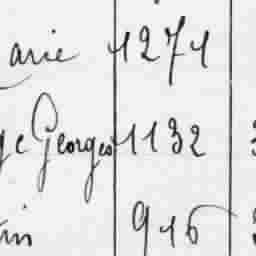 arie 1271
ge Georges 1132
in 916